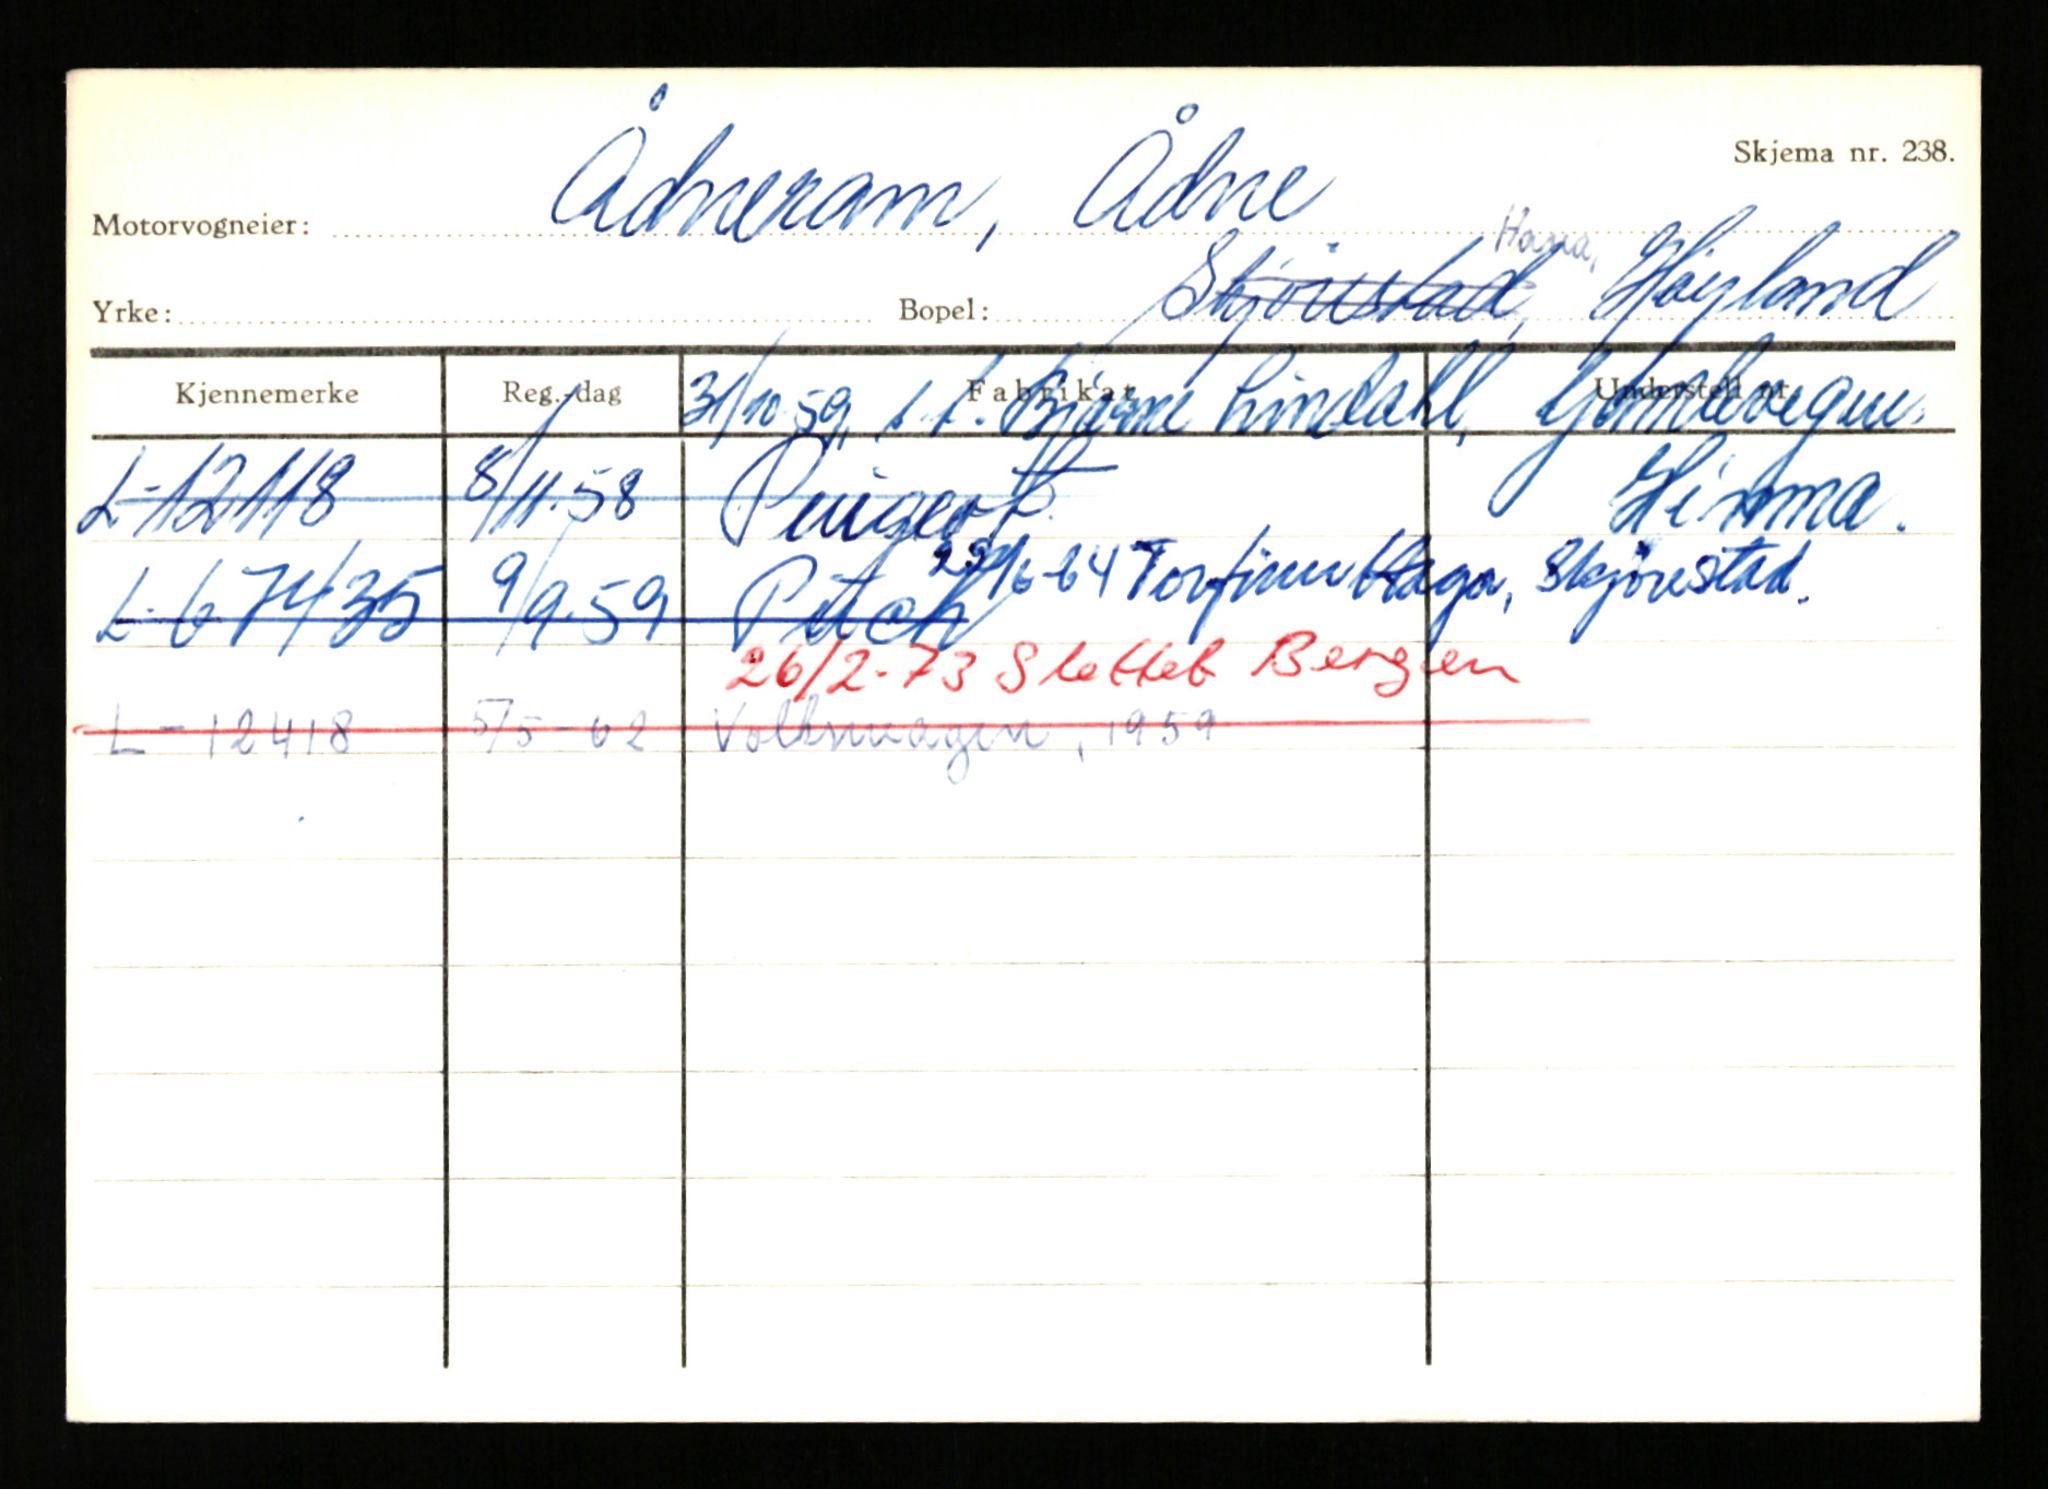 Skjema nr. 238.
Motorvogneier: Ådneram, Ådne
Hana,
Yrke: Bopel: Skjörestad, Höyland
Kjennemerke Reg.-dag Fabrikat Understell nr.
31/10-59, Bjarne Lindahl,
Hinna.
L-12118 8/11-58 Peugeot
25/6-64 Torfinn Haga, Skjörestad.
L-67435 9/9-59 Puch
26/2-73 Slettet Bergen
L-12418 5/5-62 Volkswagen, 1959